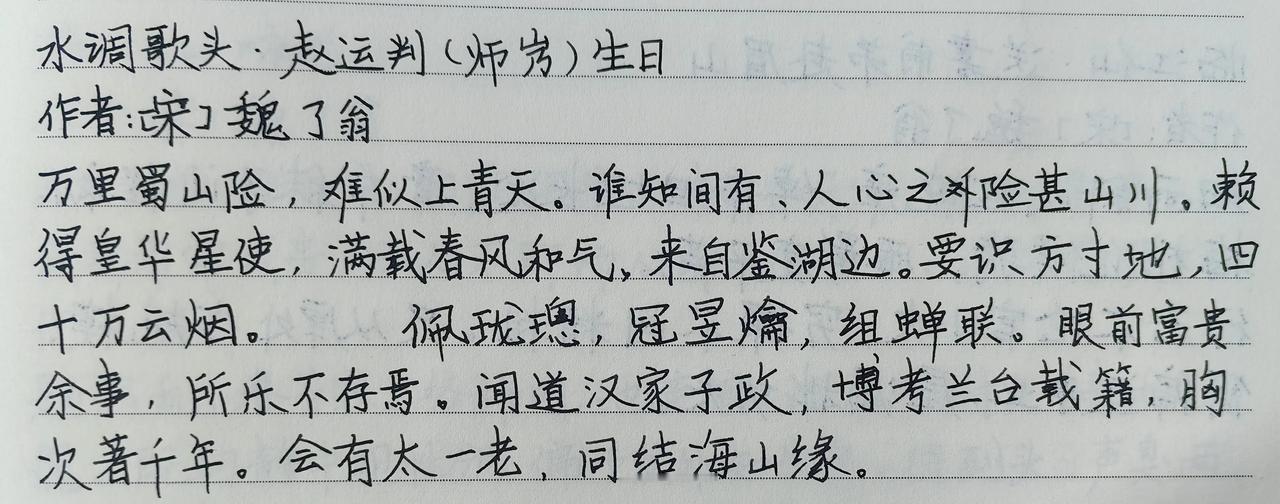 水调歌头·赵运判(师岌)生日
作者:[宋]魏了翁
万里蜀山险,难似上青天。谁知间有、人心之邓险甚山川。赖
得皇华星使,满载春风和气,来自鉴湖边。要识方寸地,四
十万云烟。 佩珑璁,冠昱爚,组蝉联。眼前富贵
余事,所乐不存焉。闻道汉家子政,博考兰台载籍,胸
次著千年。会有太一老,同结海山缘。